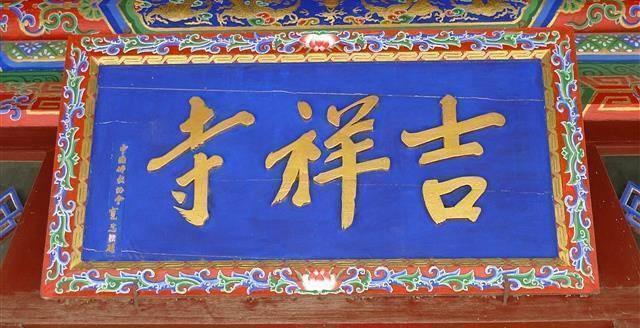 吉祥寺
中国佛教协会